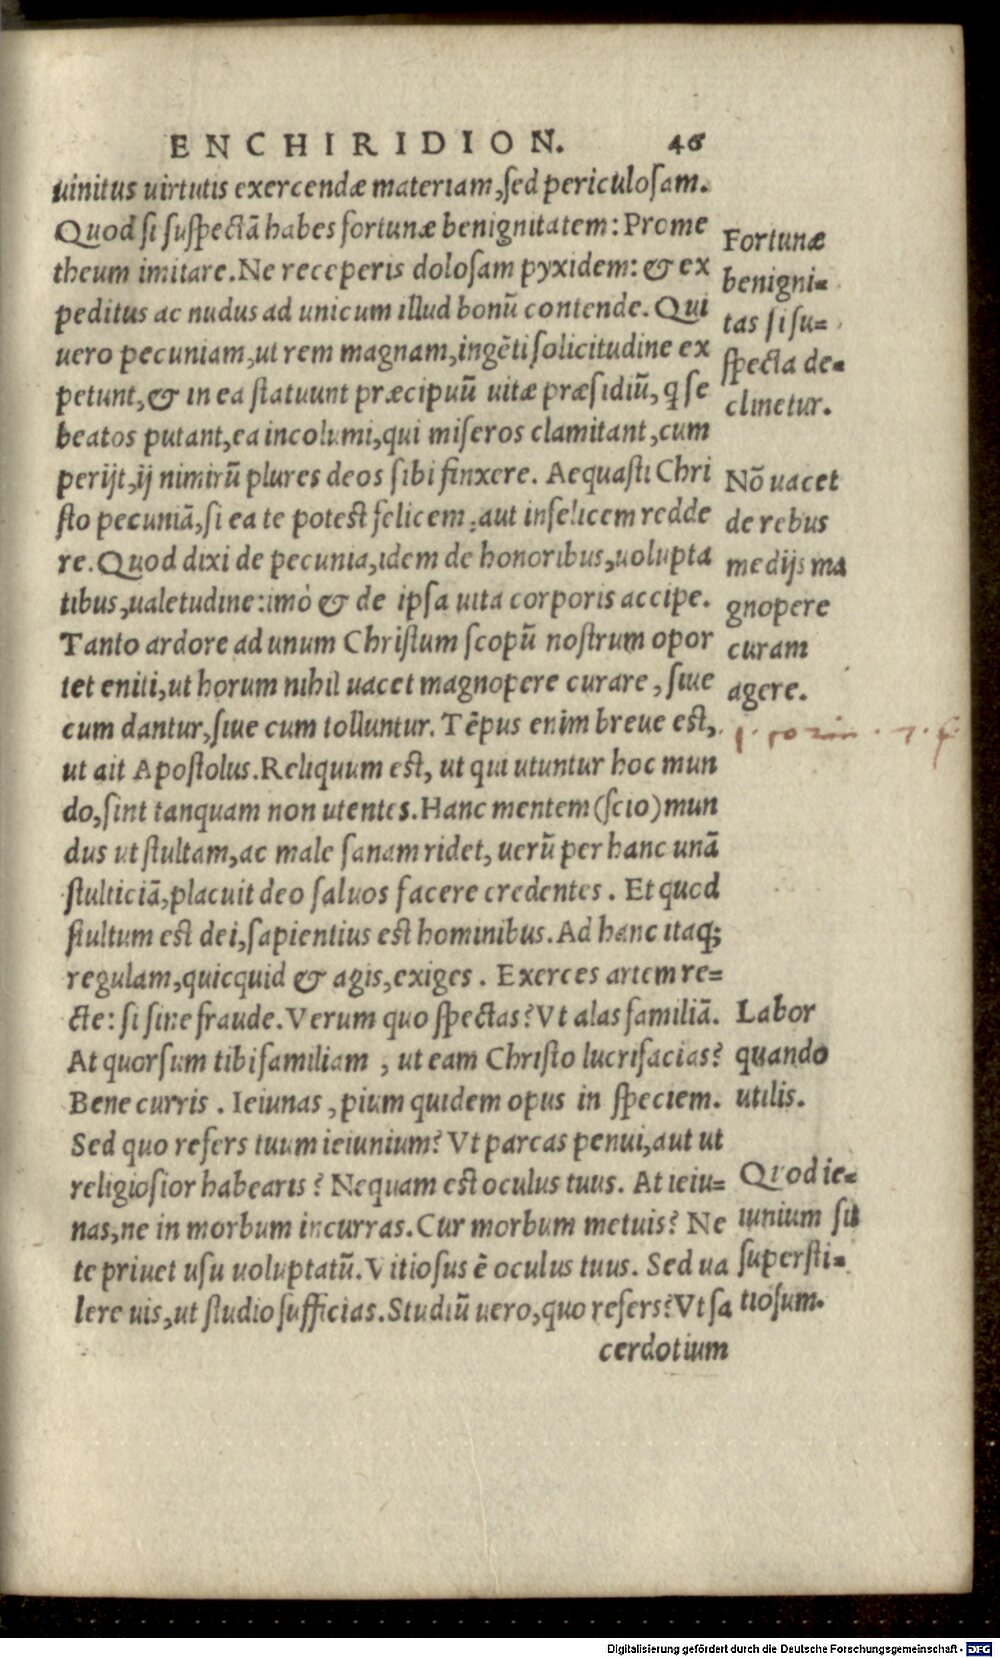 ENCHIRIDION. 46
uinitus uirtutis exercendæ materiam, sed periculosam.
Quod si suspectā habes fortunæ benignitatem: Prome
theum imitare. Ne receperis dolosam pyxidem: & ex
peditus ac nudus ad unicum illud bonū contende. Qui
uero pecuniam, ut rem magnam, ingēti solicitudine ex
petunt, & in ea statuunt præcipuū uitæ præsidiū, q̃ se
beatos putant, ea incolumi, qui miseros clamitant, cum
perijt, ij nimirū plures deos sibi finxere. Aequasti Chri
sto pecuniā, si ea te potest felicem, aut infelicem redde
re. Quod dixi de pecunia, idem de honoribus, uolupta
tibus, ualetudine: imò & de ipsa uita corporis accipe.
Tanto ardore ad unum Christum scopū nostrum opor
tet eniti, ut horum nihil uacet magnopere curare, siue
cum dantur, siue cum tolluntur. Tēpus enim breue est,
ut ait Apostolus. Reliquum est, ut qui utuntur hoc mun
do, sint tanquam non utentes. Hanc mentem (scio) mun
dus ut stultam, ac male sanam ridet, uerū per hanc unā
stulticiā, placuit deo saluos facere credentes. Et quod
stultum est dei, sapientius est hominibus. Ad hanc itaq;
regulam, quicquid & agis, exiges. Exerces artem re=
cte: si sine fraude. Verum quo spectas? Vt alas familiā.
At quorsum tibi familiam, ut eam Christo lucrifacias?
Bene curris. Ieiunas, pium quidem opus in speciem.
Sed quo refers tuum ieiunium? Vt parcas penui, aut ut
religiosior habearis? Nequam est oculus tuus. At ieiu=
nas, ne in morbum incurras. Cur morbum metuis? Ne
te priuet usu uoluptatū. Vitiosus ē oculus tuus. Sed ua
lere uis, ut studio sufficias. Studiū uero, quo refers? Vt sa
cerdotium
Fortunæ
benigni=
tas si su=
specta de=
clinetur.
Nō uacet
de rebus
medijs ma
gnopere
curam
agere.
Labor
quando
utilis.
Quod ie=
iunium sit
supersti=
tiosum.
Digitalisierung gefördert durch die Deutsche Forschungsgemeinschaft - DFG